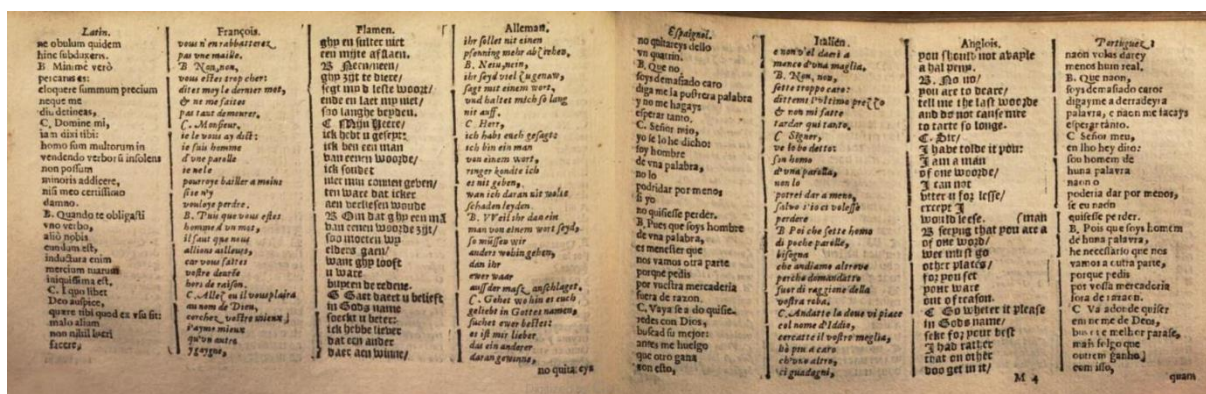 Latin.
ne obulum quidem
hinc subduxerim.
B Minimè verò
percarus es:
eloquere summum precium
neque me
diu detineas,
C, Domine mi,
iam dixi tibi:
homo sum multorum in
vendendo verborũ insolens
non possum
minoris addicere,
nisi meo certissimo
damno.
B. Quando te obligasti
vno verbo,
aliò nobis
eundum est,
inductura enim
mercium tuarum
iniquissima est.
C. I quo libet
Deo auspice,
quære tibi quod ex vsu sit:
malo alium
non nihil lucri
facere,
François.
vous n'en rabbatterez
pas vne maille.
B Non, non,
vous estes trop cher:
dites moy le dernier mot,
& ne me faites
pas tant demeurer,
C. Monsieur,
ie le vous ay dist:
ie suis homme
d'vne parolle
ie ne le
pourroye bailler a moins
si ie n'y
vouloye perdre.
B. Puis que vous estes
homme d'vn mot,
il faut que nous
allions ailleurs,
car vous faites
vostre denrée
hors de raison.
C. Allez ou il vous plaira
au nom de Dieu,
cerchez vostre mieux,
i'ayme mieux
qu'vn autre
y gaigne,
Flamen.
ghy en sulter niet
een mijte afslaen.
B Neen/neen/
ghy zijt te diere/
segt my d leste woort/
ende en laet my niet/
soo langhe beyden.
C Mijn Heere/
ick hebt u geseyt:
ick ben een man
van eenen woorde/
ick soudet
niet min connen geven/
ten ware dat icker
aen verliesen woude
B Om dat ghy een mã
van eenen woorde zijt/
soo moeten wy
elders gaen/
want ghy looft
u ware
buyten de redene.
C Gaet daert u belieft
in Gods name
soeckt u beter:
ick hebbe liever
dat een ander
daer aen winne/
Alleman.
ihr sollet nit einen
pfenning mehr abziehen,
B. Nein, nein,
ihr seyd viel zu genaw,
sagt mit einem wort,
vnd haltet mich so lang
nit auff.
C Herr,
ich habs euch gesagt:
ich bin ein man
von einem wort,
ringer köndte ich
es nit geben,
wan ich daran nit wolte
schaden leyden.
B. VVeil ihr dan ein
man von einem wort seyd,
so müssen wir
anders wohin gehen,
dan ihr
ewer waar
auss der masz anschlaget.
C. Gehet wo hin es euch
geliebt in Gottes namen,
suchet ewer bestes:
es ist mir lieber
das ein anderer
daran gewinne,
no quita eys
Español.
no quitareys dello
vn quatrin.
B. Que no
soys demasiado caro
diga me la postrera palabra
y no me hagays
esperar tanto.
C. Señor mio,
yo se lo he dicho:
soy hombre
de vna palabra,
no lo
podridar por menos
si yo
no quisiesse perder.
B. Pues que soys hombre
de vna palabra,
es menester que
nos vamos otra parte
porque pedis
por vuestra mercaderia
fuera de razon.
C. Vaya se a do quisie-
redes con Dios,
buscad su mejor:
antes me huelgo
que otro gana
con esto,
Italiën.
e non v'el darei a
manco d'vna maglia,
B. Non, non,
sette troppo caro:
dittemi l'vltimo prezzo
& non mi fatte
tardar qui tanto,
C Signer,
ve lo ho detto:
son homo
d'vna parolla,
non lo
potrei dar a meno,
salvo s'io ci volesse
perdere
B Poi che sette homo
di poche parelle,
bisogna
che andiamo altrove
perche domandatte
fuor di raggione della
vostra roba.
C. Andatte la dove vi piace
col nome d'Iddio,
cercatte il vostro meglio,
hò piu a caro
ch'vno altro,
ci guadagni,
Anglois.
you should not avayle
a hal vens.
B. No no/
you are to deare/
tell me the last woorde
and do not cause mee
to tarte so longe.
C. Sir/
I have tolde it you:
I am a man
of one woorde/
I can not
utter it for lesse/
except I
would leese. (man
B seeyng that you are a
of one word/
wee must go
other places/
for you set
your ware
out of reason.
C Go wheter it please
in Gods name/
sekt for your best
I had rather
that on other
doo get in it/
M 4
Portuguez,
naon volas darey
menos hum real.
B. Que naon,
soys demasiado caro:
digay me a derradeyra
palavra, e naen me facays
esperar tanto.
C Señor meu,
en lho hey dito:
sou homem de
huna palavra
naon o
poderia dar por menos,
se eu naon
quisesse perder.
B. Pois que soys homem
de huna palavra,
he necessario que nos
vamos a outra parte,
porque pedis
por vossa mercaderia
fora de razaon.
C Va ador de quiser
em nome de Deos,
busque melher parase,
mais folgo que
outrem ganho,
com isso,
quam